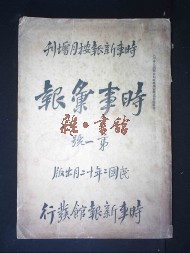 時事新報按月增刊
時事彙報
第一號
民國二年十二月出版
時事新報館發行